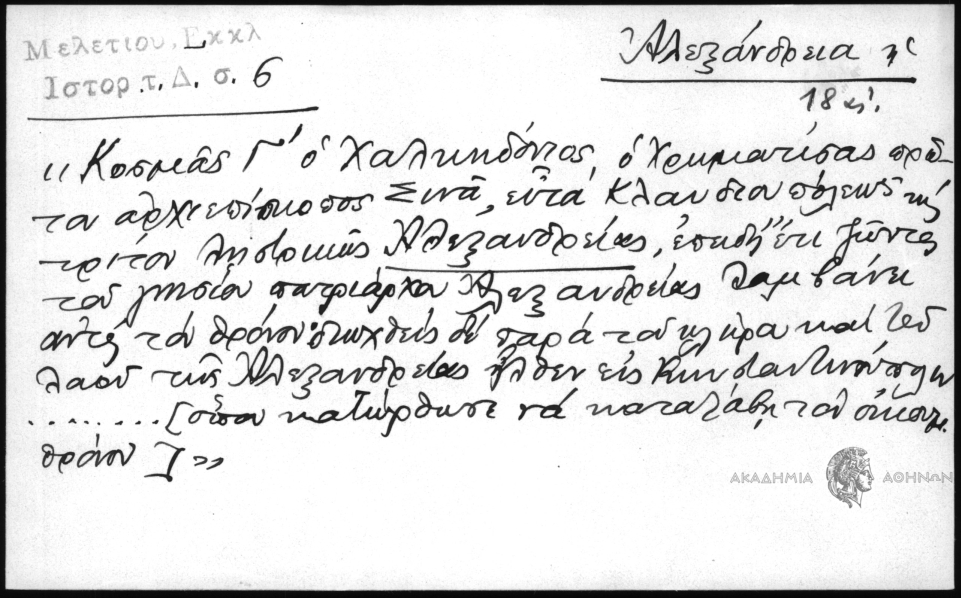 Μελετίου, Εκκλ
Ιστορ. τ. Δ. σ. 6
Ἀλεξάνδρεια ἡ
18 αἰ.
"Κοσμᾶς Γ' ὁ Χαλκηδόνιος, ὁ χρηματίσας πρῶ-
τον ἀρχιεπίσκοπος Σινᾶ, εἶτα Κλαυδιουπόλεως τῆς
τρίτον Ἀλεξανδρείας, ἐπειδὴ ἔτι ζῶντος
τοῦ γνησίου πατριάρχου Ἀλεξανδρείας λαμβάνει
αὐτὸς τὸν θρόνον· διωχθεὶς δὲ παρὰ τοῦ κλήρου καὶ τοῦ
λαοῦ τῆς Ἀλεξανδρείας ἦλθεν εἰς Κωνσταντινούπολιν
......... [ὅπου κατώρθωσε νὰ καταλάβῃ τὸν οἰκουμ.
θρόνον]"
ΑΚΑΔΗΜΙΑ ΑΘΗΝΩΝ